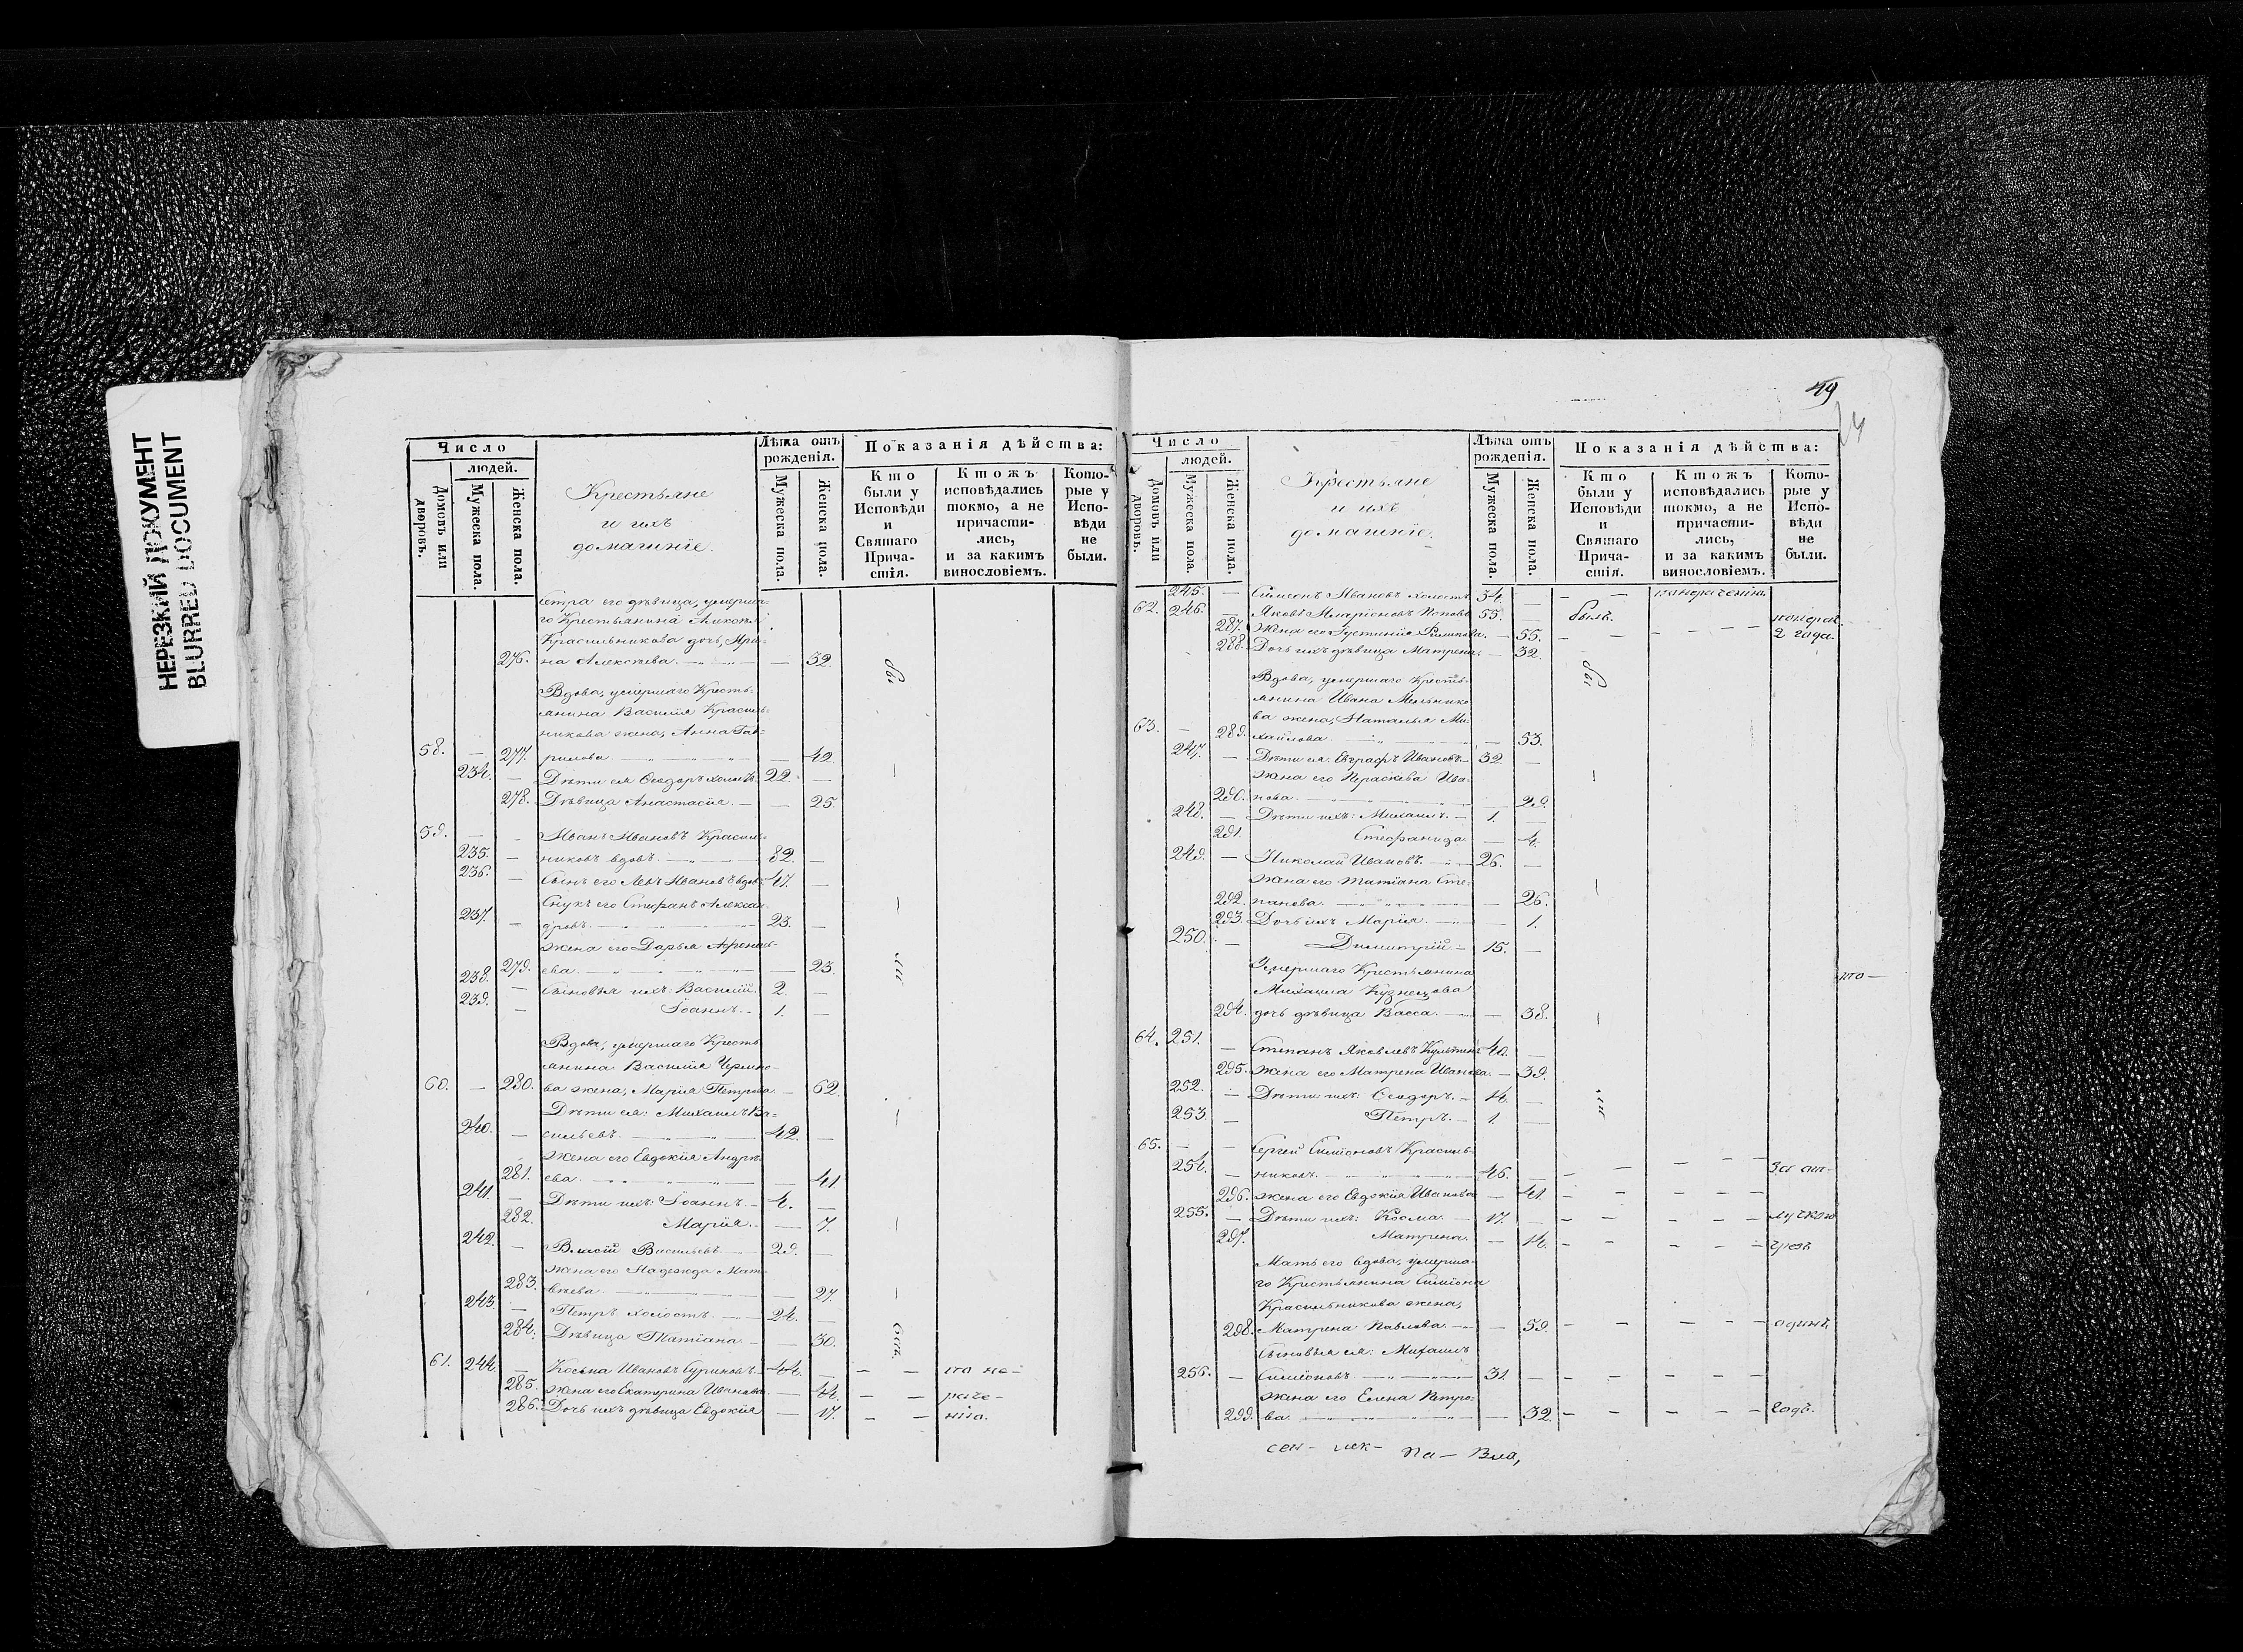 НЕРЕЗКИЙ ДОКУМЕНТ
BLURRED DOCUMENT
Число
людей.
Домовъ или дворовъ.
Мужеска пола.
Женска пола.
Крестьяне
и ихъ
домашніе.
Лѣта отъ рожденія.
Мужеска пола.
Женска пола.
Показанія дѣйства:
Кто были у Исповѣди и Святаго Прича-стія.
Ктожъ исповѣдались токмо, а не причасти-лись, и за какимъ винословіемъ.
Кото-рые у Испо-вѣди не были.
Сестра его дѣвица, умерша-
го Крестьянина
Красильникова дочь, Ири-
276. на Алексѣева. — — 32. бы
Вдова, умершаго Кресть-
янина Василія Красиль-
никова жена, Анна Гав-
58. — 277. рилова. — — 42.
234. — Дѣти ея Ѳеодоръ холостъ 22. — —
278. Дѣвица Анастасія. — — 25.
59. — — Иванъ Ивановъ Красиль-
235. — никовъ вдовъ. — 82. —
236. — Сынъ его Левъ Ивановъ вдовъ 47. —
Внукъ его Стефанъ Алексан- —
237. — дровъ. — 23. —
Жена его Дарья Афонась-
279. ева. — — 23. ли
238. — Сыновья ихъ: Василій. 2. —
239. — Іоаннъ. — 1. —
Вдова, умершаго Кресть-
янина Василія Чермно-
60. — 280. ва жена, Марія Петрова. — 62.
Дѣти ея: Михаилъ Ва- —
240. — сильевъ. — 42. —
Жена его Евдокія Андре-
281. ева. — — 41.
241. — Дѣти ихъ: Іоаннъ. — 4. —
282. Марія. — — 7. —
242. — Власій Васильевъ. — 29. —
Жена его Надежда Мат-
283. вѣева. — — 27. —
243. — Петръ холостъ. — 24. —
284. Дѣвица Татіана — — 30.
61. 244. — Косьма Ивановъ Суриновъ. 44. — — — по не-
285. Жена его Екатерина Иванова. — 44. — — раче-
286. Дочь ихъ дѣвица Евдокія — 17. — — нію.
49
Число
людей.
Домовъ или дворовъ.
Мужеска пола.
Женска пола.
Крестьяне
и ихъ
домашніе.
Лѣта отъ рожденія.
Мужеска пола.
Женска пола.
Показанія дѣйства:
Кто были у Исповѣди и Святаго Прича-стія.
Ктожъ исповѣдались токмо, а не причасти-лись, и за какимъ винословіемъ.
Кото-рые у Испо-вѣди не были.
245. — Симеонъ Ивановъ холостъ 34. — — —
62. 246. — Яковъ Иларіоновъ Поповъ 55. — былъ.
287. Жена его Іустинія Филипова. — 55. — — — — 2 года.
288. Дочь ихъ дѣвица Матрена. — 32. бы
Вдова, умершаго Кресть-
янина Ивана Мельнико-
ва жена, Наталья Ми-
63. — 289. хайлова. — — 53.
247. — Дѣти ея: Евграфъ Ивановъ. 32. —
Жена его Параскева Ива- —
290. нова. — — 29.
248. — Дѣти ихъ: Михаилъ. — 1. —
291. Стефанида — 4.
249. — Николай Ивановъ. — 26. —
Жена его Татіана Сте- —
292. панова. — — 26.
293. Дочь ихъ Марія. — — 1.
250. — Димитрій. — 15. —
Умершаго Крестьянина
Михаила Кузнецова
294. дочь дѣвица Васса. — — 38. —
64. 251. — Степанъ Яковлевъ 40. —
295. Жена его Матрена Иванова. — 39.
252. — Дѣти ихъ: Ѳеодоръ. — 14. — ли
253. — Петръ. — 1. —
65. — — Сергей Симіоновъ Красиль-
254. — никовъ. — 46. — — — — — За от-
296. Жена его Евдокія Иванова — 41. — — — —
255. — Дѣти ихъ: Косма. — 17. — — — — — лучкою
297. Матрена. — 14. — — — — чрезъ
Мать его вдова, умерша-
го Крестьянина Симіона
Красильникова жена,
298. Матрена Павлова. — — 59. — — — — одинъ
Сыновья ея: Михаилъ
256. — Симіоновъ — 31. — — — — —
Жена его Елена Петро-
299. ва. — — 32. — — — — годъ.